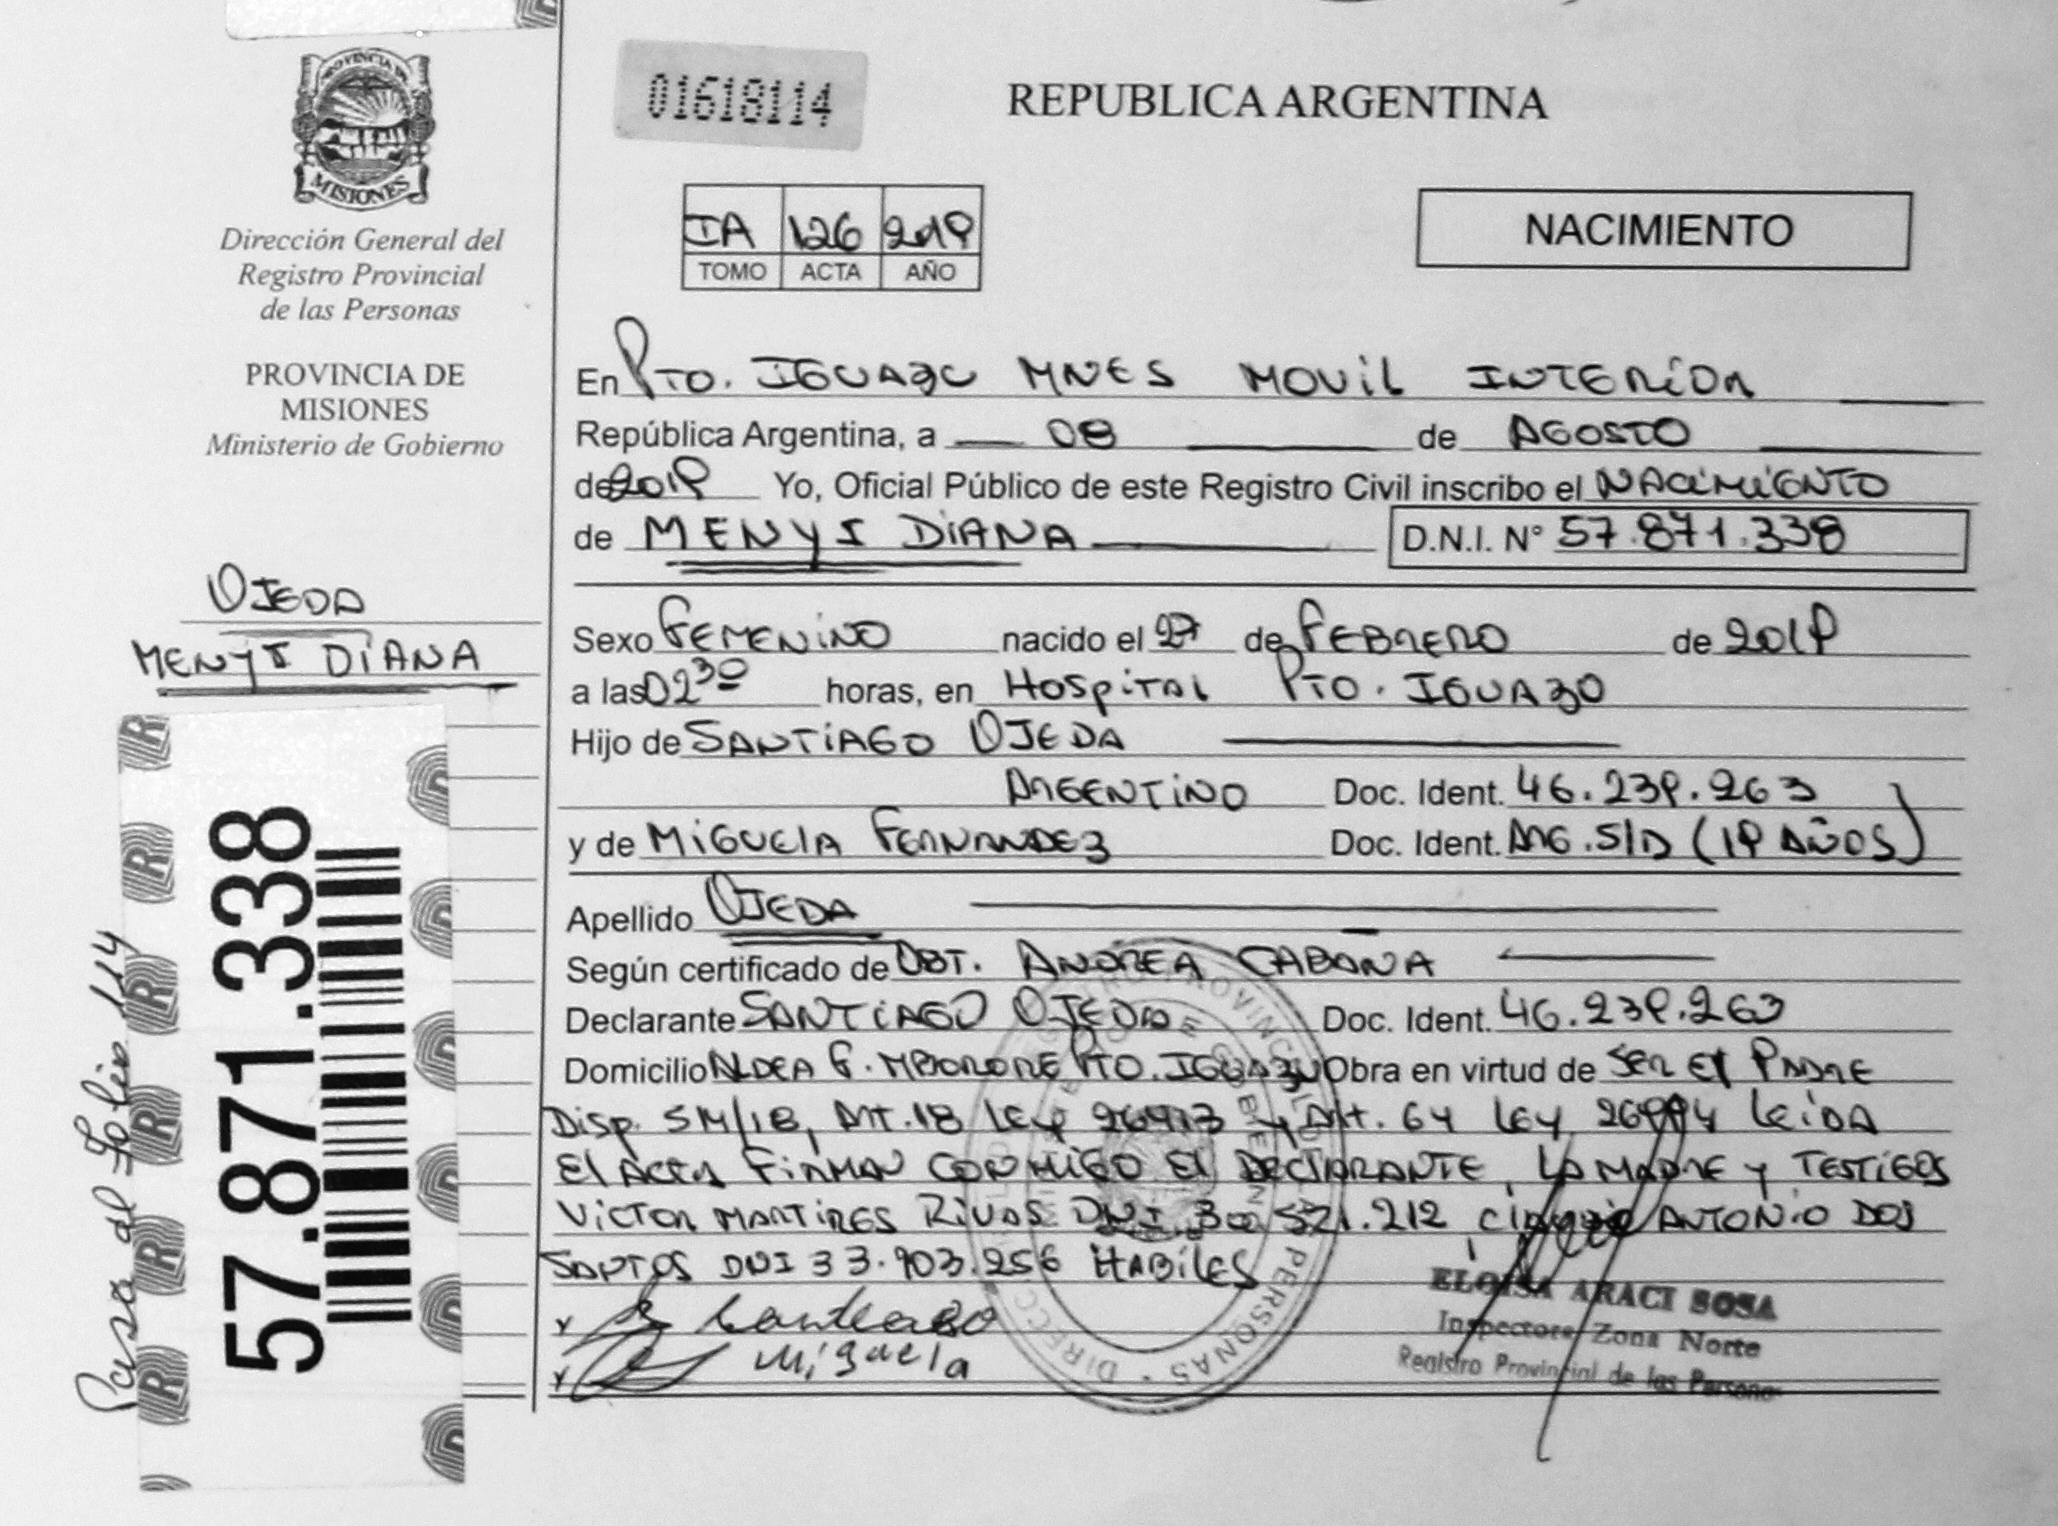 PROVINCIA DE
MISIONES
Dirección General del
Registro Provincial
de las Personas
PROVINCIA DE
MISIONES
Ministerio de Gobierno
OJEDA
MENYI DIANA
57.871.338
Pasa al Folio 114
01618114
REPUBLICA ARGENTINA
IA 126 2019
TOMO ACTA AÑO
NACIMIENTO
En PTO. IGUAZU MNES MOVIL INTERIOR
República Argentina, a 08 de AGOSTO
de 2019 Yo, Oficial Público de este Registro Civil inscribo el NACIMIENTO
de MENYI DIANA D.N.I. N° 57.871.338
Sexo FEMENINO nacido el 27 de FEBRERO de 2019
a las 02 30 horas, en HOSPITAL PTO. IGUAZU
Hijo de SANTIAGO OJEDA
ARGENTINO Doc. Ident. 46.239.263
y de MIGUELA FERNANDEZ Doc. Ident. ARG. S/D (19 AÑOS)
Apellido OJEDA
Según certificado de OBT. ANDREA CABAÑA
Declarante SANTIAGO OJEDA Doc. Ident. 46.239.263
Domicilio ALDEA F. MBORORE PTO. IGUAZU Obra en virtud de SER EL PADRE
DISP. 514/18, ART. 18 LEY 26413 Y ART. 64 LEY 26994 LEIDA
EL ACTA FIRMAN CONMIGO EL DECLARANTE, LA MADRE Y TESTIGOS
VICTOR MARTIRES RIVAS DNI 30.521.212 ANTONIO DOS
SANTOS DNI 33.903.256 HABILES
Santiago
Miguela
ELOISA ARACI SOSA
Inspectora Zona Norte
Registro Provincial de las Personas